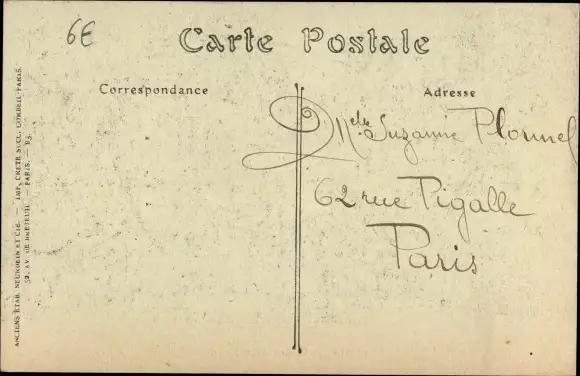 6€
Carte Postale
Correspondance
Adresse
Melle Suzanne Plonnel
62 rue Pigalle
Paris
ANCIENS ETAB. NEURDEIN ET CIE. — IMP. CRÉTÉ SUCC. CORBEIL-PARIS.
52, AV. DE BRETEUIL — PARIS. — B3.